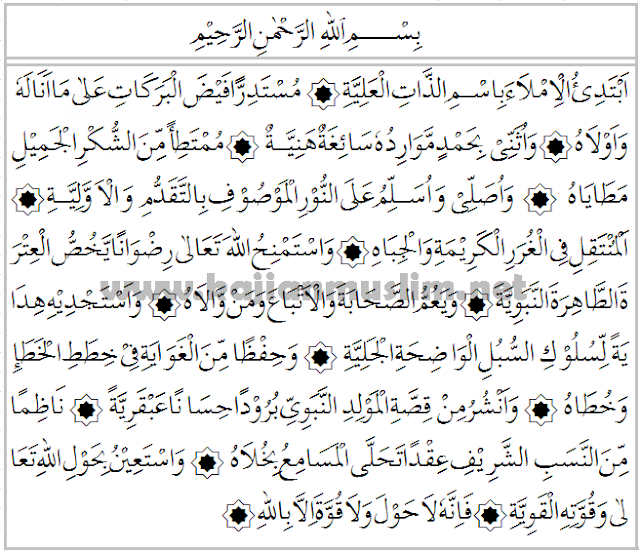 بِسْــــمِ اللهِ الرَّحْمٰنِ الرَّحِيْمِ
اَبْتَدِئُ الْاِمْلَاءَ بِاسْــمِ الذَّاتِ الْعَلِيَّةِ ۞ مُسْتَدِرًّا فَيْضَ الْبَرَكَاتِ عَلٰى مَا اَنَالَهُ
وَاَوْلَاهُ ۞ وَاُثَنِّيْ بِحَمْدٍ مَّوَارِدُهُ سَائِغَةٌ هَنِيَّــةٌ ۞ مُمْتَطِأً مِّنَ الشُّكْرِ الْجَمِيْلِ
مَطَايَاهُ ۞ وَاُصَلِّيْ وَاُسَــلِّمُ عَلَى النُّوْرِ الْمَوْصُوْفِ بِالتَّقَدُّمِ وَالْاَوَّلِيَّــةِ ۞
اَلْمُنْتَقِلِ فِي الْغُرَرِ الْكَرِيْمَةِ وَالْجِبَاهِ ۞ وَاسْتَمْنِحُ اللهَ تَعَالٰى رِضْوَانًا يَّخُصُّ الْعِتْرَ
ةَ الطَّاهِرَةَ النَّبَوِيَّةَ ۞ وَيَعُمُّ الصَّحَابَةَ وَالْاَتْبَاعَ وَمَنْ وَّالَاهُ ۞ وَاسْتَجْدِيْهِ هِدَا
www.kajianmuslim.net
يَةً لِّسُلُوْكِ السُّبُلِ الْوَاضِحَةِ الْجَلِيَّةِ ۞ وَحِفْظًا مِّنَ الْغَوَايَةِ فِيْ خِطَطِ الْخَطَاءِ
وَخُطَاهُ ۞ وَاَنْشُرُ مِنْ قِصَّةِ الْمَوْلِدِ النَّبَوِيِّ بُرُوْدًا حِسَانًا عَبْقَرِيَّةً ۞ نَاظِمًا
مِّنَ النَّسَبِ الشَّرِيْفِ عِقْدًا تَحَلَّى الْمَسَامِعُ بِحُلَاهُ ۞ وَاسْتَعِيْنُ بِحَوْلِ اللهِ تَعَا
لٰى وَقُوَّتِهِ الْقَوِيَّةِ ۞ فَاِنَّهُ لَا حَوْلَ وَلَا قُوَّةَ اِلَّا بِاللهِ ۞